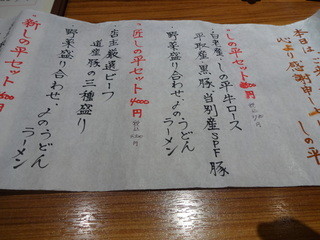 本日は
心より感謝申
しの平
・しの平セット
白老産・しの平牛ロース
平取産黒豚・当別産SPF豚
野菜盛り合わせ・〆のうどん
ラーメン
・匠しの平セット4000円
店主厳選ビーフ
道産豚の三種盛り
野菜盛り合わせ・〆のうどん
ラーメン
・新しの平セット
円